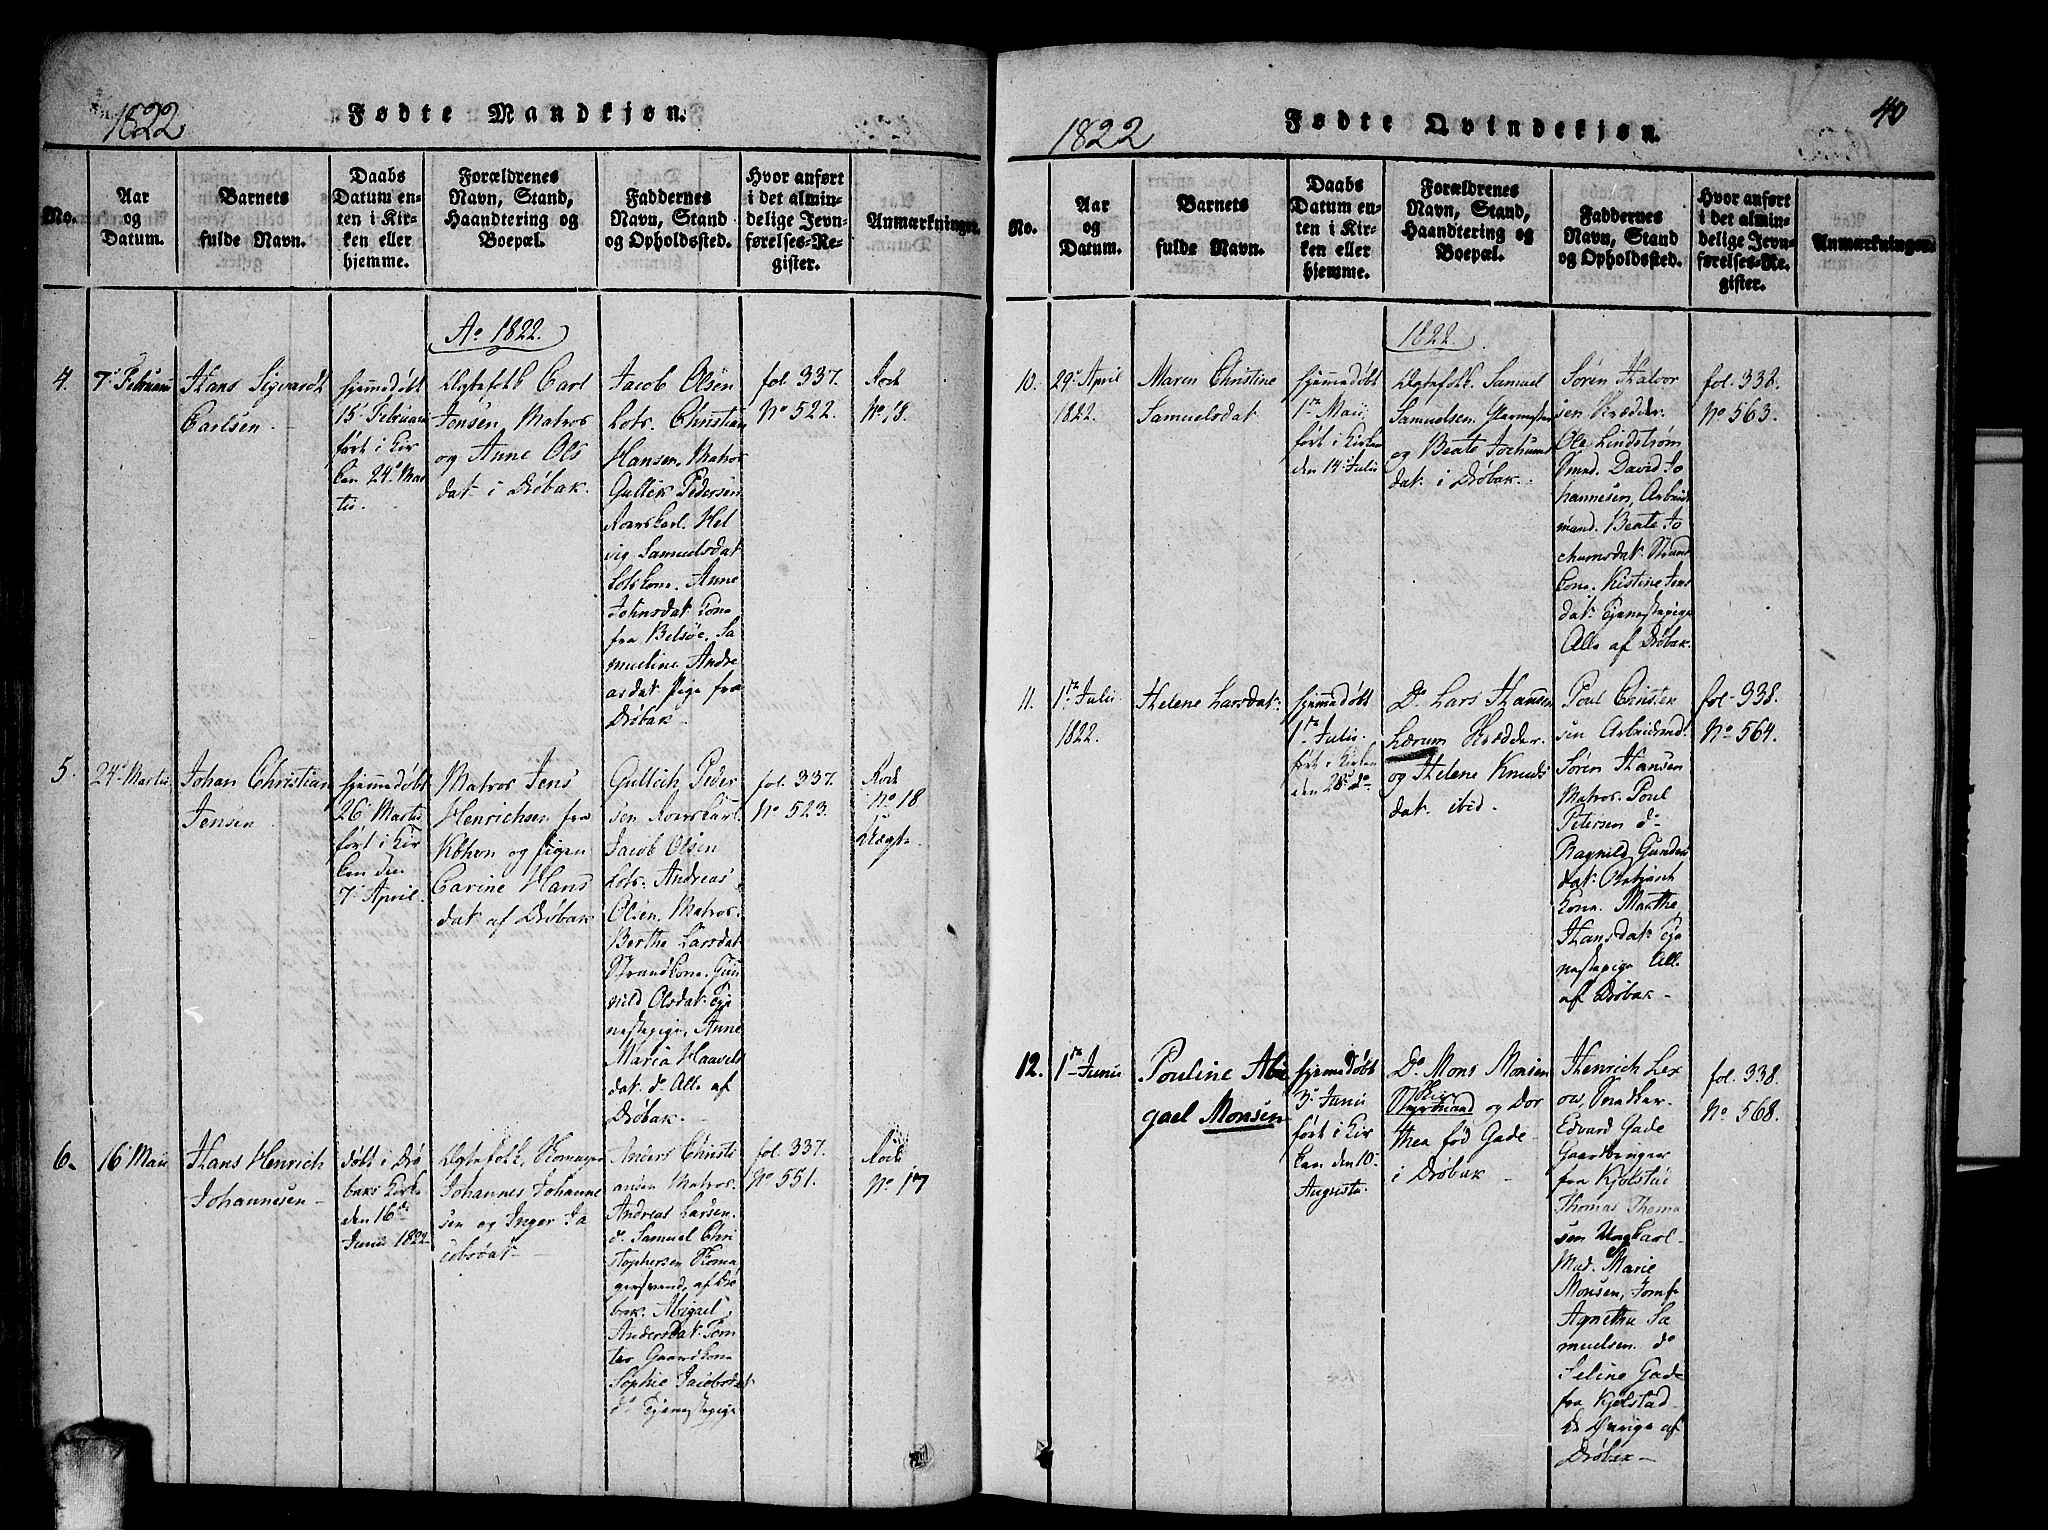 1822
Fødte Mandkjøn.
No.
Aar
og
Datum.
Barnets
fulde Navn.
Daabs
Datum en-
ten i Kir-
ken eller
hjemme.
Forældrenes
Navn, Stand,
Haandtering og
Boepæl.
Faddernes
Navn, Stand
og Opholdssted.
Hvor anført
i det almin-
delige Jevn-
førelses-Re-
gister.
Anmarkninger.
Ao 1822.
4.
7 Februarii
Hans Sigvardt
Carlsen
hjemmedøbt
15 Februarii
ført i Kir
ken 24 Mar
tii.
Ægtefolk Carl
Jensen, Matros
og Anne Ols
dat. i Drøbak.
Jacob Olsen
Lots. Christian
Hansen, Matros
Gullik Pedersen
Roerskarl. Hel
vig Samuelsdat
Lotskone. Anne
Johnsdat. Kone
fra Belsøe. Sa
mueline Andre
asdat. pige fra
Drøbak
fol. 337.
No 522.
Rode
No. 18.
5.
24 Martii
Johan Christian
Jensen
hjemmedøbt
26 Martii
ført i Kir
ken den
7 April.
Matros Jens
Henrichsen fra
Kbhvn og pigen
Carine Hans
dat. af Drøbak
Gullich Peder
sen Roerskarl.
Jacob Olsen
Lots. Andreas
Olsen. Matros.
Berthe Larsdat
Strandkone. Gun
nild Olsdat. Tje
nestepige, Anne
Maria Haavels
dat. do Alle af
Drøbak
fol. 337.
No 523.
Rode
No 18
Uægte
6.
16 Maii
Hans Henrich
Johannesen
døbt i Drø
baks Kirke
den 16de
Junii 1822
Ægtefolk, Skomager
Johannes Johanne
sen og Inger Ja
cobsdat
Anders Christi
ansen Matros.
Andreas Larsen.
do Samuel Chri
stophersen Skoma
gersvend, af Drø
bak. Abigael
Andersdat.
Gaardkone
Sophie Jacobsdat
do Tjenestepige
fol. 337.
No 551.
Rode
No 17
40
1822
Fødte Qvindekjøn.
No.
Aar
og
Datum.
Barnets
fulde Navn.
Daabs
Datum en-
ten i Kir-
ken eller
hjemme.
Forældrenes
Navn, Stand,
Haandtering og
Boepæl.
Faddernes
Navn, Stand
og Opholdssted.
Hvor anført
i det almin-
delige Jevn-
førelses-Re-
gister.
Anmarkninger.
1822.
10.
29 April
1822.
Maren Christine
Samuelsdat
hjemmedøbt
1ste Maii,
ført i Kirken
den 14 Julii
Ægtefolk. Samuel
Samuelsen. Glarmester
og Beate Jochums
dat. i Drøbak.
Søren Halvor
sen Skrædder.
Ole Lindstrøm
Smed. David Jo
hannesen, Arbeids
mand. Beate Jo
chumsdat. Strand
kone. Kistine Jens
dat. Tjenestepige
Alle af Drøbak.
fol. 338.
No 563.
11.
1ste Julii
1822.
Helene Larsdat.
hjemmedøbt
1ste Julii
ført i Kirken
den 28 do
Do Lars Hansen
Lærum Skrædder.
og Helene Knuds
dat. ibid.
Poul Christen
sen Arbeidsmd.
Søren Hansen
Matros. Poul
Petersen do
Ragnild Gunders
dat.
Kone. Marthe
Hansdat. Tje
nestepige Alle
af Drøbak
fol. 338.
No 564.
12.
1ste Junii
Pouline Abi
gael Monsen
hjemmedøbt
3 Junii
ført i Kir
ken den 10
Augustii.
Do Mons Monsen
Skip
Styrmand og Dor
thea fød Gade
i Drøbak
Henrich Lex
ow, Snedker.
Edvard Gade
Gaardbruger
fra Kjolstad
Thomas Thoma
sen Ungkarl
Mad. Marie
Monsen, Jomf.
Agnetha Sa
muelsen. do
Seline Gade
fra Kjolstad
De Øvrige af
Drøbak
fol. 338.
No 568.